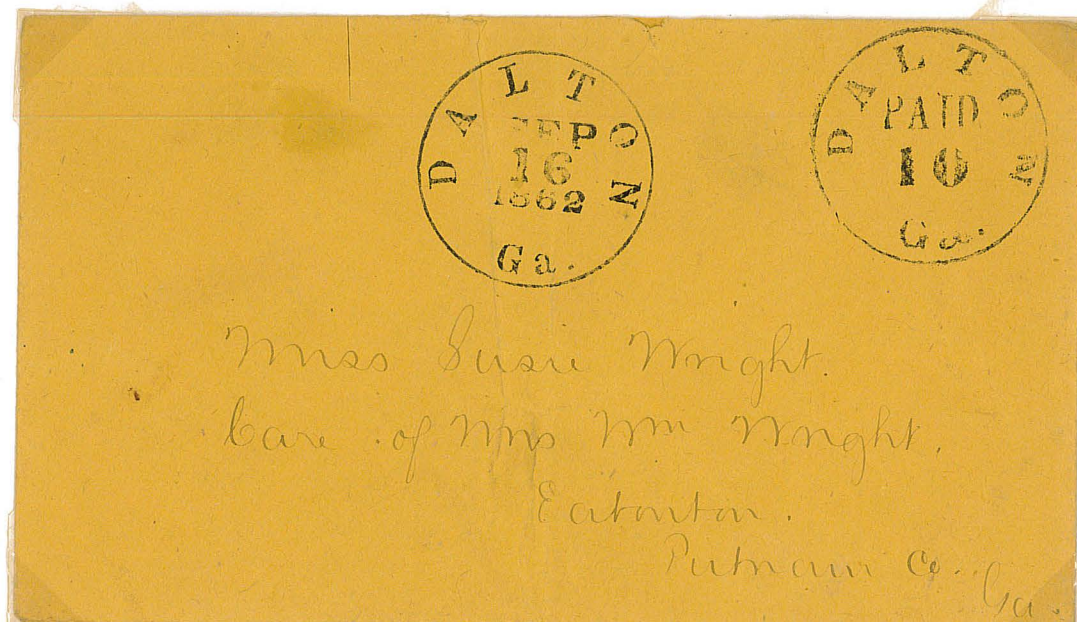 DALTON
SEP
16
1862
Ga.
DALTON
PAID
10
Ga.
Miss Susie Wright.
Care of Mrs Wm Wright.
Eatonton.
Putnam Co. Ga.